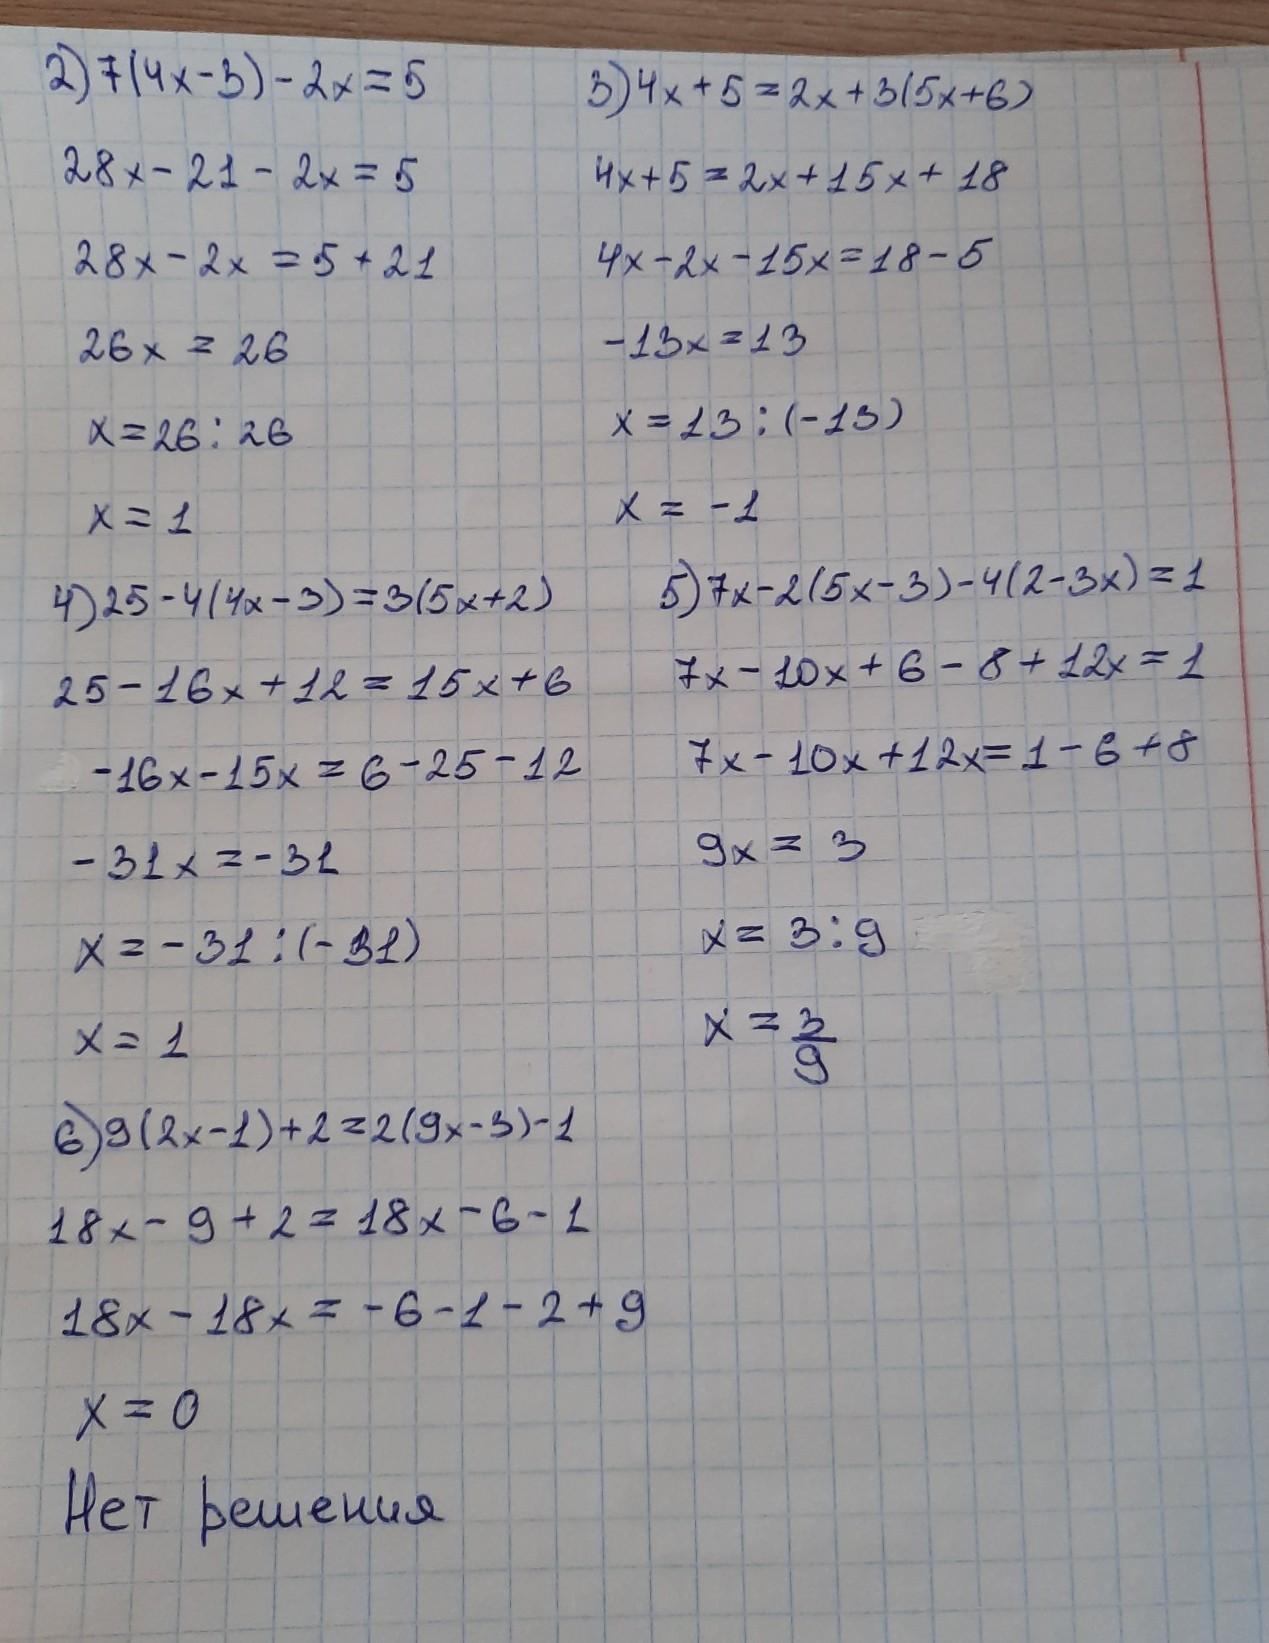 2) 7(4x-3) - 2x = 5
28x - 21 - 2x = 5
28x - 2x = 5 + 21
26x = 26
x = 26 : 26
x = 1
3) 4x + 5 = 2x + 3(5x+6)
4x + 5 = 2x + 15x + 18
4x - 2x - 15x = 18 - 5
-13x = 13
x = 13 : (-13)
x = -1
4) 25 - 4(4x-3) = 3(5x+2)
25 - 16x + 12 = 15x + 6
-16x - 15x = 6 - 25 - 12
-31x = -31
x = -31 : (-31)
x = 1
5) 7x - 2(5x-3) - 4(2-3x) = 1
7x - 10x + 6 - 8 + 12x = 1
7x - 10x + 12x = 1 - 6 + 8
9x = 3
x = 3 : 9
x = 3/9
6) 9(2x-1) + 2 = 2(9x-3) - 1
18x - 9 + 2 = 18x - 6 - 1
18x - 18x = -6 - 1 - 2 + 9
x = 0
Нет решения